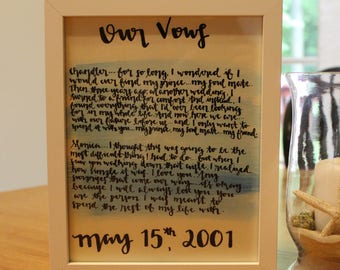 Our Vows
Chandler... for so long, I wondered if I
would ever find my prince... my soul mate.
Then three years ago, at another wedding, I
turned to a friend for comfort. And instead... I
found everything that I'd ever been looking
for in my whole life. And now here we are
with our future before us.. and I only want to
spend it with you... my prince, my soul mate.. my friend.
Monica... I thought this was going to be the
most difficult thing I had to do. But when I
saw you walking down that aisle I realized
how simple it was. I love you. Any
surprises that come our way.. it's okay
because I will always love you. You
are the person I was meant to
spend the rest of my life with.
May 15th, 2001